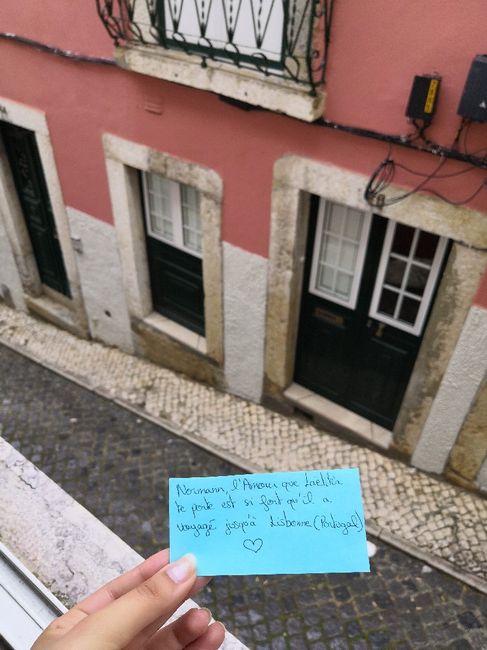 Normann, l'Amour que Laetitia
te porte est si fort qu'il a
voyagé jusqu'à Lisbonne (Portugal)